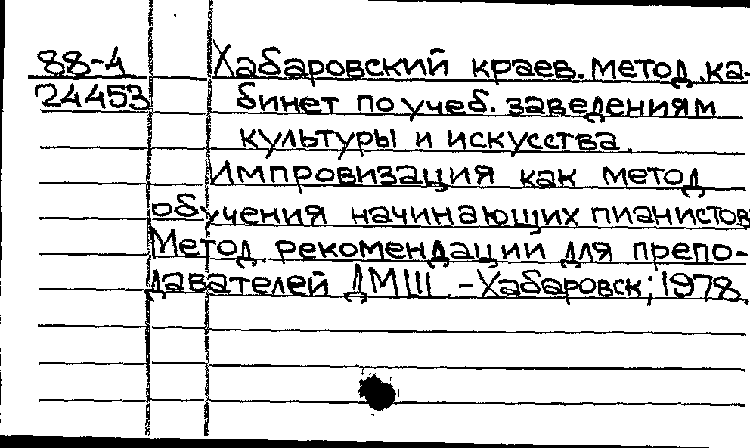 88-4 Хабаровский краев. метод. ка-
24453 бинет по учеб. заведениям
культуры и искусства.
Импровизация как метод
обучения начинающих пианистов
Метод. рекомендации для препо-
давателей ДМШ. - Хабаровск, 1978.